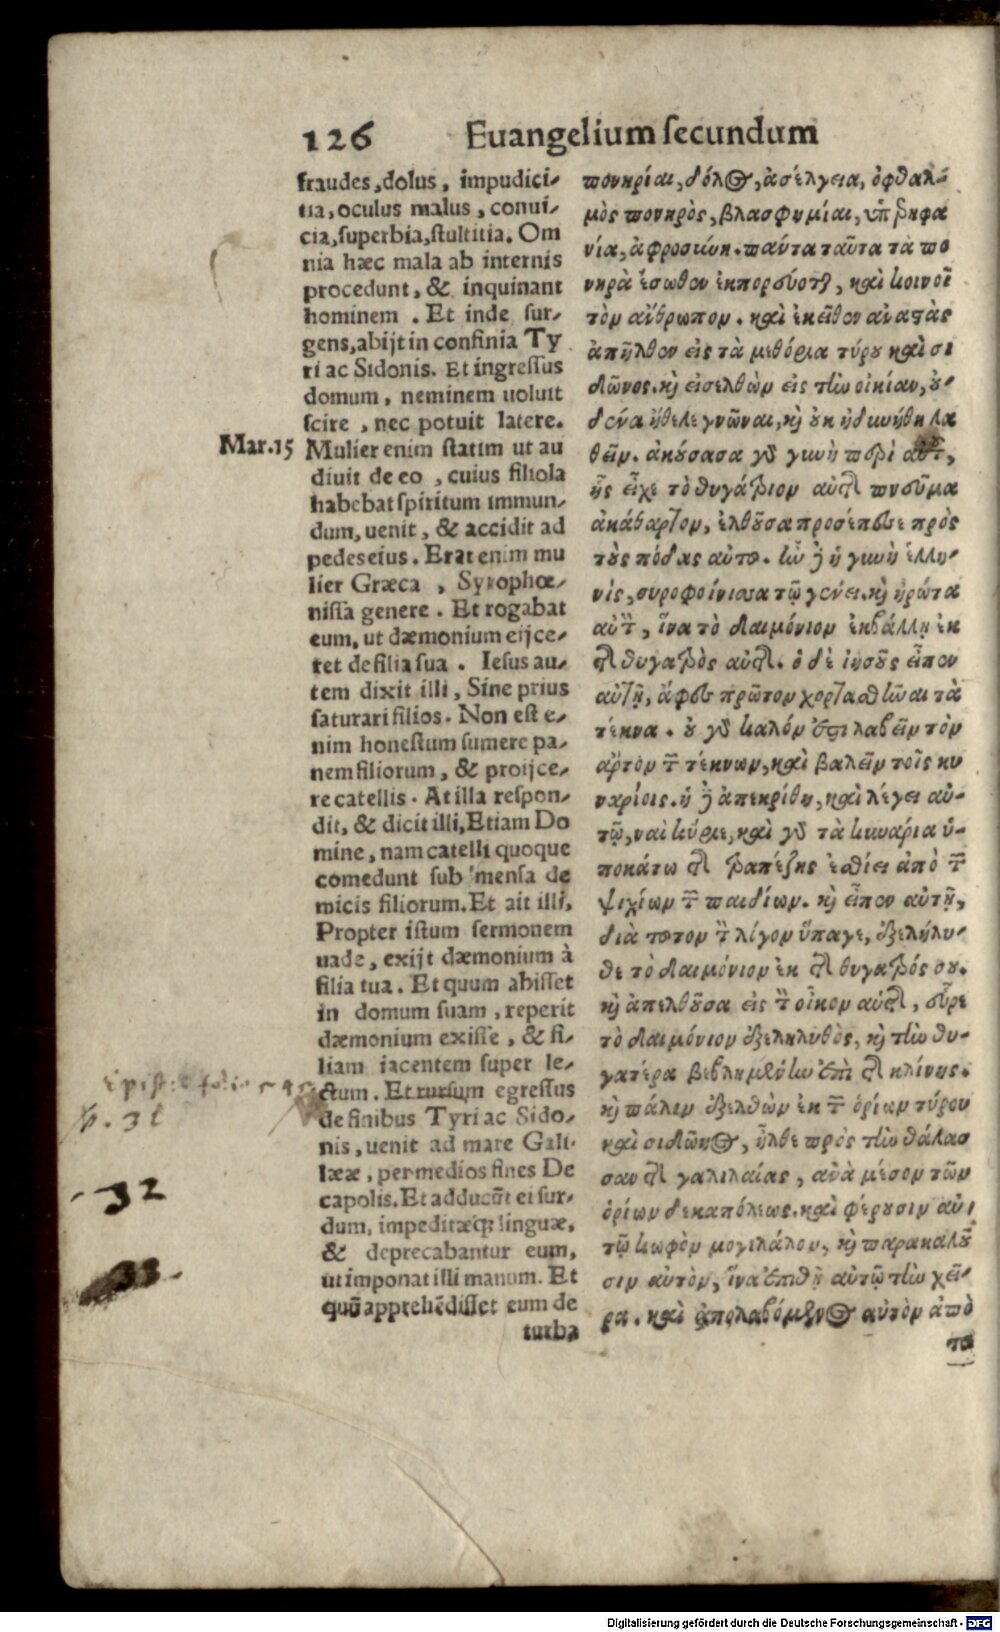 126 Euangelium ſecundum
fraudes, dolus, impudici-
tia, oculus malus, conui-
cia, ſuperbia, ſtultitia. Om
nia hæc mala ab internis
procedunt, & inquinant
hominem. Et inde ſur-
gens, abijt in confinia Ty
ri ac Sidonis. Et ingreſſus
domum, neminem uoluit
ſcire, nec potuit latere.
Mar.15 Mulier enim ſtatim ut au
diuit de eo, cuius filiola
habebat ſpiritum immun-
dum, uenit, & accidit ad
pedes eius. Erat enim mu
lier Græca, Syrophœ-
niſſa genere. Et rogabat
eum, ut dæmonium eijce-
ret de filia ſua. Ieſus au-
tem dixit illi, Sine prius
ſaturari filios. Non eſt e-
nim honeſtum ſumere pa-
nem filiorum, & proijce-
re catellis. At illa reſpon-
dit, & dicit illi, Etiam Do
mine, nam catelli quoque
comedunt ſub menſa de
micis filiorum. Et ait illi,
Propter iſtum ſermonem
uade, exijt dæmonium à
filia tua. Et quum abiſſet
in domum ſuam, reperit
dæmonium exiſſe, & fi-
liam iacentem ſuper le-
ctum. Et rurſum egreſſus
de finibus Tyri ac Sido-
nis, uenit ad mare Gali-
lææ, per medios fines De
capolis. Et adducūt ei ſur-
dum, impeditæq́; linguæ,
& deprecabantur eum,
ut imponat illi manum. Et
quū apprehēdiſſet eum de
turba
πονηρίαι, δόλος, ἀσέλγεια, ὀφθαλ-
μὸς πονηρὸς, βλασφημίαι, ὑπερηφα
νία, ἀφροσύνη. πάντα ταῦτα τὰ πο
νηρὰ ἔσωθεν ἐκπορεύεται, καὶ κοινοῖ
τὸν ἄνθρωπον. καὶ ἐκεῖθεν ἀναστὰς
ἀπῆλθεν εἰς τὰ μεθόρια τύρου καὶ σι
δῶνος. καὶ εἰσελθὼν εἰς τὴν οἰκίαν, ου-
δένα ἤθελε γνῶναι, καὶ ουκ ἠδυνήθη λα
θεῖν. ἀκούσασα γὰρ γυνὴ περὶ αυτοῦ,
ἧς εἶχε τὸ θυγάτριον αὐτῆς πνεῦμα
ἀκάθαρτον, ἐλθοῦσα προσέπεσε πρὸς
τοὺς πόδας αὐτοῦ. ἦν δὲ ἡ γυνὴ ἑλλη-
νὶς, συροφοίνισσα τῷ γένει. καὶ ἠρώτα
αὐτὸν, ἵνα τὸ δαιμόνιον ἐκβάλλῃ ἐκ
τῆς θυγατρὸς αὐτῆς. ὁ δὲ ἰησοῦς εἶπεν
αὐτῇ, ἄφες πρῶτον χορτασθῆναι τὰ
τέκνα. ου γὰρ καλόν ἐστι λαβεῖν τὸν
ἄρτον τῶν τέκνων, καὶ βαλεῖν τοῖς κυ
ναρίοις. ἡ δὲ ἀπεκρίθη, καὶ λέγει αὐ-
τῷ, ναὶ κύριε, καὶ γὰρ τὰ κυνάρια ὑ-
ποκάτω τῆς τραπέζης ἐσθίει ἀπὸ τῶν
ψιχίων τῶν παιδίων. καὶ εἶπεν αὐτῇ,
διὰ τοῦτον τὸν λόγον ὕπαγε, ἐξελήλυ-
θε τὸ δαιμόνιον ἐκ τῆς θυγατρός σου.
καὶ ἀπελθοῦσα εἰς τὸν οἶκον αὐτῆς, εὗρε
τὸ δαιμόνιον ἐξεληλυθὸς, καὶ τὴν θυ-
γατέρα βεβλημένην ἐπὶ τῆς κλίνης.
καὶ πάλιν ἐξελθὼν ἐκ τῶν ὁρίων τύρου
καὶ σιδῶνος, ἦλθε πρὸς τὴν θάλασ
σαν τῆς γαλιλαίας, ἀνὰ μέσον τῶν
ὁρίων δεκαπόλεως. καὶ φέρουσιν αὐ
τῷ κωφὸν μογιλάλον, καὶ παρακαλοῦ
σιν αὐτὸν, ἵνα ἐπιθῇ αὐτῷ τὴν χεῖ-
ρα. καὶ ἀπολαβόμενος αὐτὸν ἀπὸ
το
32
33
Digitalisierung gefördert durch die Deutsche Forschungsgemeinschaft - DFG